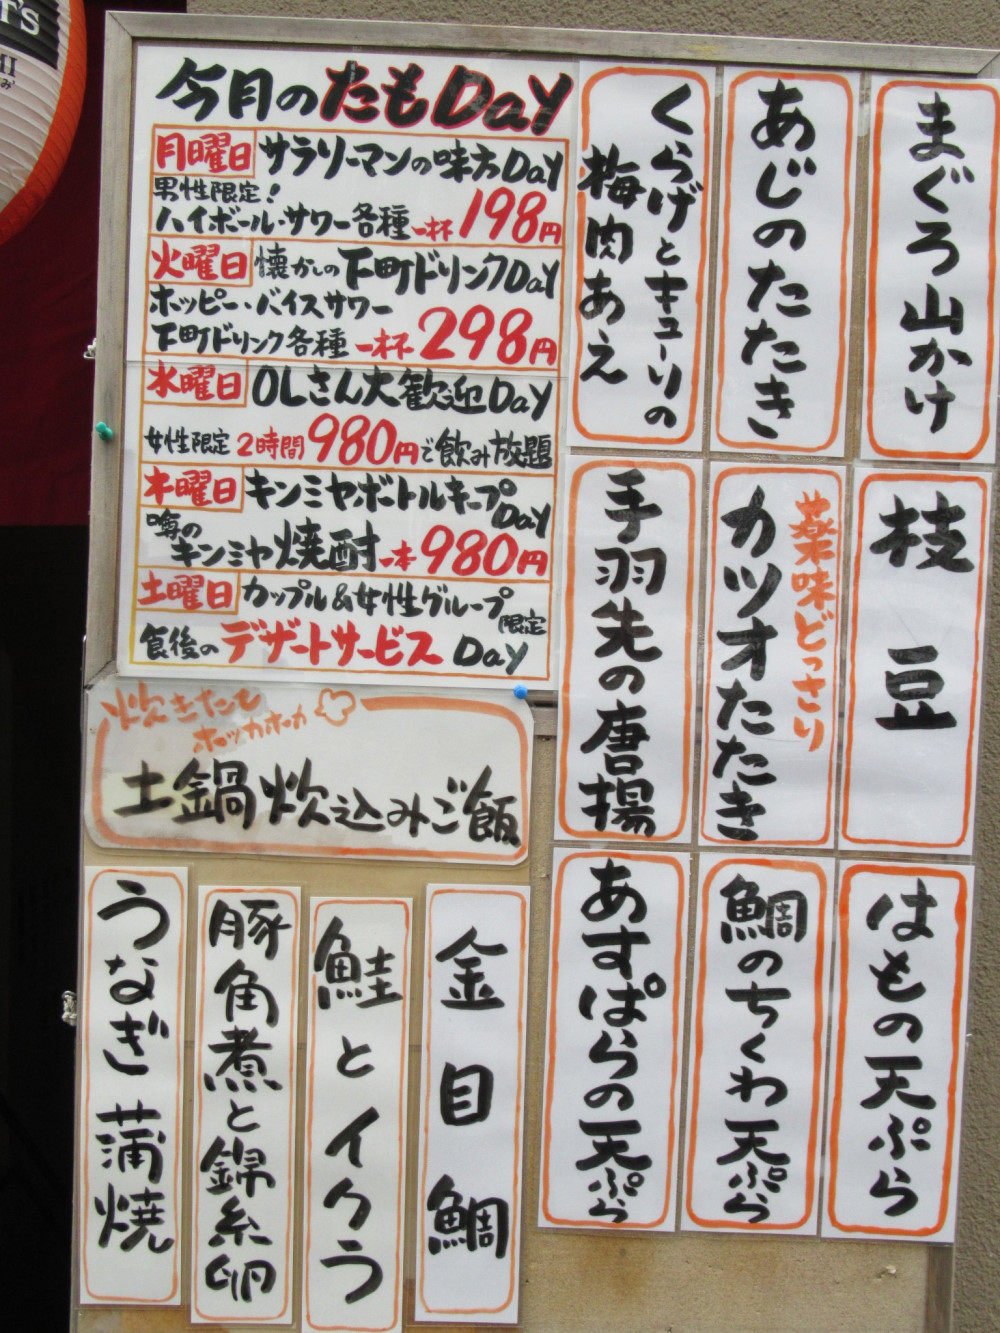 T'S
MI
み
今月のたもDay
月曜日 サラリーマンの味方Day
男性限定!
ハイボール・サワー各種 一杯198円
火曜日 懐かしの下町ドリンクDay
ホッピー・バイスサワー
下町ドリンク各種 一杯298円
水曜日 OLさん大歓迎Day
女性限定 2時間980円で飲み放題
木曜日 キンミヤボトルキープDay
噂のキンミヤ焼酎 一本980円
土曜日 カップル&女性グループ限定
食後のデザートサービスDay
まぐろ山かけ
あじのたたき
くらげとキューリの
梅肉あえ
枝豆
薬味どっさり
カツオたたき
手羽先の唐揚
はもの天ぷら
鯛のちくわ天ぷら
あすぱらの天ぷら
炊きたて
ホッカホカ
土鍋炊込みご飯
金目鯛
鮭とイクラ
豚角煮と錦糸卵
うなぎ蒲焼